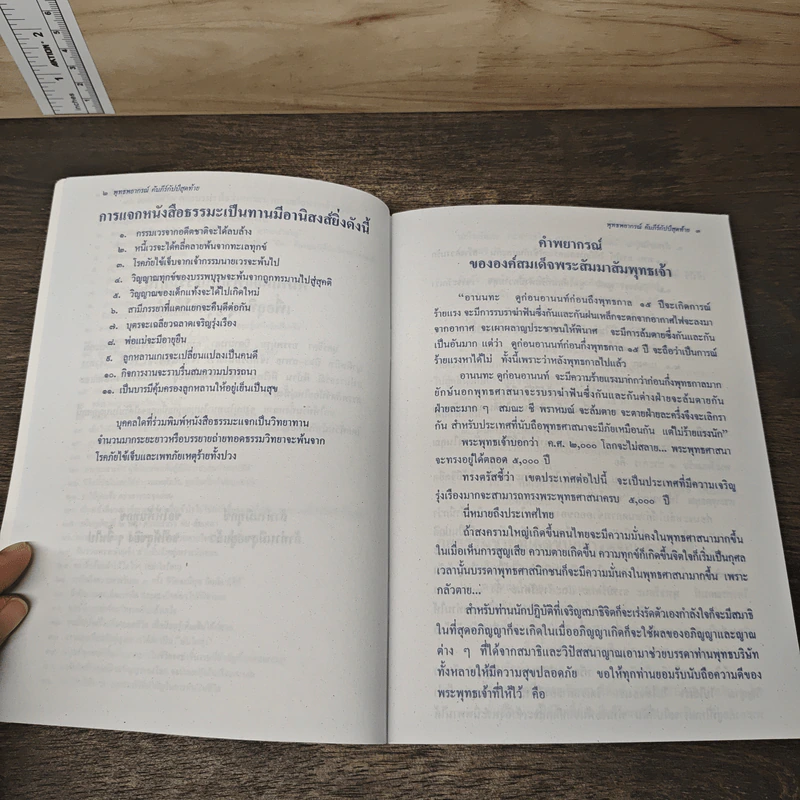 ๒ พุทธพยากรณ์ คัมภีร์กัปป์สุดท้าย
การแจกหนังสือธรรมะเป็นทานมีอานิสงส์ยิ่งดังนี้
๑. กรรมเวรจากอดีตชาติจะได้ลบล้าง
๒. หนี้เวรจะได้คลี่คลายพ้นจากทะเลทุกข์
๓. โรคภัยไข้เจ็บจากเจ้ากรรมนายเวรจะพ้นไป
๔. วิญญาณทุกข์ของบรรพบุรุษจะพ้นจากถูกทรมานไปสู่สุคติ
๕. วิญญาณของเด็กแท้งจะได้ไปเกิดใหม่
๖. สามีภรรยาที่แตกแยกจะคืนดีต่อกัน
๗. บุตรจะเฉลียวฉลาดเจริญรุ่งเรือง
๘. พ่อแม่จะมีอายุยืน
๙. ลูกหลานเกเรจะเปลี่ยนแปลงเป็นคนดี
๑๐. กิจการงานจะราบรื่นสมความปรารถนา
๑๑. เป็นบารมีคุ้มครองลูกหลานให้อยู่เย็นเป็นสุข
บุคคลใดที่ร่วมพิมพ์หนังสือธรรมะแจกเป็นวิทยาทาน
จำนวนมากระยะยาวหรือบรรยายถ่ายทอดธรรมวิทยาจะพ้นจาก
โรคภัยไข้เจ็บและเพทภัยเหตุร้ายทั้งปวง
พุทธพยากรณ์ คัมภีร์กัปป์สุดท้าย ๓
คำพยากรณ์
ขององค์สมเด็จพระสัมมาสัมพุทธเจ้า
“อานนทะ ดูก่อนอานนท์ก่อนถึงพุทธกาล ๑๕ ปีจะเกิดการณ์
ร้ายแรง จะมีการบราฆ่าฟันซึ่งกันและกันฝนเหล็กจะตกจากอากาศไฟจะลงมา
จากอากาศ จะเผาผลาญประชาชนให้พินาศ จะมีการล้มตายซึ่งกันและกัน
เป็นอันมาก แต่ว่า ดูก่อนอานนท์ก่อนกึ่งพุทธกาล ๑๕ ปี จะถือว่าเป็นการณ์
ร้ายแรงหาได้ไม่ ทั้งนี้เพราะว่าหลังพุทธกาลไปแล้ว
อานนทะ ดูก่อนอานนท์ จะมีความร้ายแรงมากกว่าก่อนกึ่งพุทธกาลมาก
ยักษ์นอกพุทธศาสนาจะรบราฆ่าฟันซึ่งกันและกันต่างฝ่ายจะล้มตายกัน
ฝ่ายละมาก ๆ สมณะ ชี พราหมณ์ จะล้มตาย จะตายฝ่ายละครึ่งจึงจะเลิกรา
กัน สำหรับประเทศที่นับถือพุทธศาสนาจะมีภัยเหมือนกัน แต่ไม่ร้ายแรงนัก”
พระพุทธเจ้าบอกว่า ค.ศ. ๒,๐๐๐ โลกจะไม่สลาย... พระพุทธศาสนา
จะทรงอยู่ได้ตลอด ๕,๐๐๐ ปี
ทรงตรัสชี้ว่า เขตประเทศต่อไปนี้ จะเป็นประเทศที่มีความเจริญ
รุ่งเรืองมากจะสามารถทรงพระพุทธศาสนาครบ ๕,๐๐๐ ปี
นี่หมายถึงประเทศไทย
ถ้าสงครามใหญ่เกิดขึ้นคนไทยจะมีความมั่นคงในพุทธศาสนามากขึ้น
ในเมื่อเห็นการสูญเสีย ความตายเกิดขึ้น ความทุกข์ก็เกิดขึ้นจิตใจก็เริ่มเป็นกุศล
เวลานั้นบรรดาพุทธศาสนิกชนก็จะมีความมั่นคงในพุทธศาสนามากขึ้น เพราะ
กลัวตาย...
สำหรับท่านนักปฏิบัติที่เจริญสมาธิจิตก็จะเร่งรัดตัวเองกำลังใจก็จะมีสมาธิ
ในที่สุดอภิญญาก็จะเกิดในเมื่ออภิญญาเกิดก็จะใช้ผลของอภิญญาและญาณ
ต่าง ๆ ที่ได้จากสมาธิและวิปัสสนาญาณเอามาช่วยบรรดาท่านพุทธบริษัท
ทั้งหลายให้มีความสุขปลอดภัย ขอให้ทุกท่านยอมรับนับถือความดีของ
พระพุทธเจ้าที่ให้ไว้ คือ